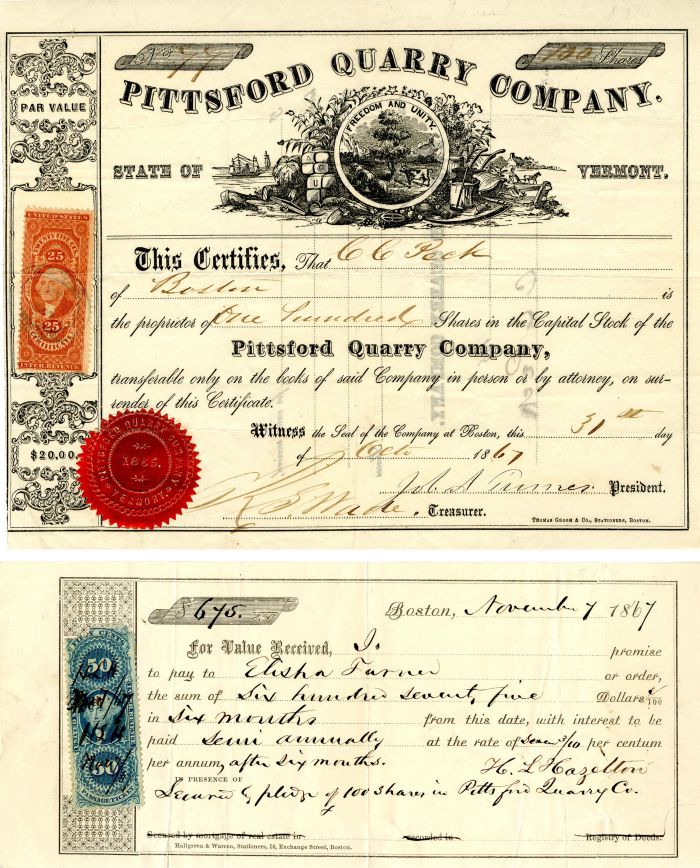 No 77
100 Shares
PITTSFORD QUARRY COMPANY.
PAR VALUE
FREEDOM AND UNITY.
STATE OF VERMONT.
UNITED STATES
TWENTY FIVE CTS.
25 25
25
CERTIFICATE
INTER. REVENUE
This Certifies, That C C Peck
of Boston is
the proprietor of One hundred Shares in the Capital Stock of the
Pittsford Quarry Company,
transferable only on the books of said Company in person or by attorney, on sur-
render of this Certificate.
Witness the Seal of the Company at Boston, this 31st day
of Octo 1867
$20,00
PITTSFORD QUARRY CO.
1865.
VERMONT
Turner President.
Wade. Treasurer.
THOMAS GROOM & CO., STATIONERS, BOSTON.
$675.
Boston, November 7 1867
For Value Received, I promise
to pay to Elisha Turner or order,
the sum of Six hundred seventy five Dollars /100
in Six months from this date, with interest to be
paid semi annually at the rate of Seven 3/10 per centum
per annum, after six months. H. L Hazelton
IN PRESENCE OF
Secured by pledge of 100 shares in Pittsford Quarry Co.
Secured by mortgage of real estate in recorded in Registry of Deeds.
Hallgren & Warren, Stationers, 14, Exchange Street, Boston.
50
50